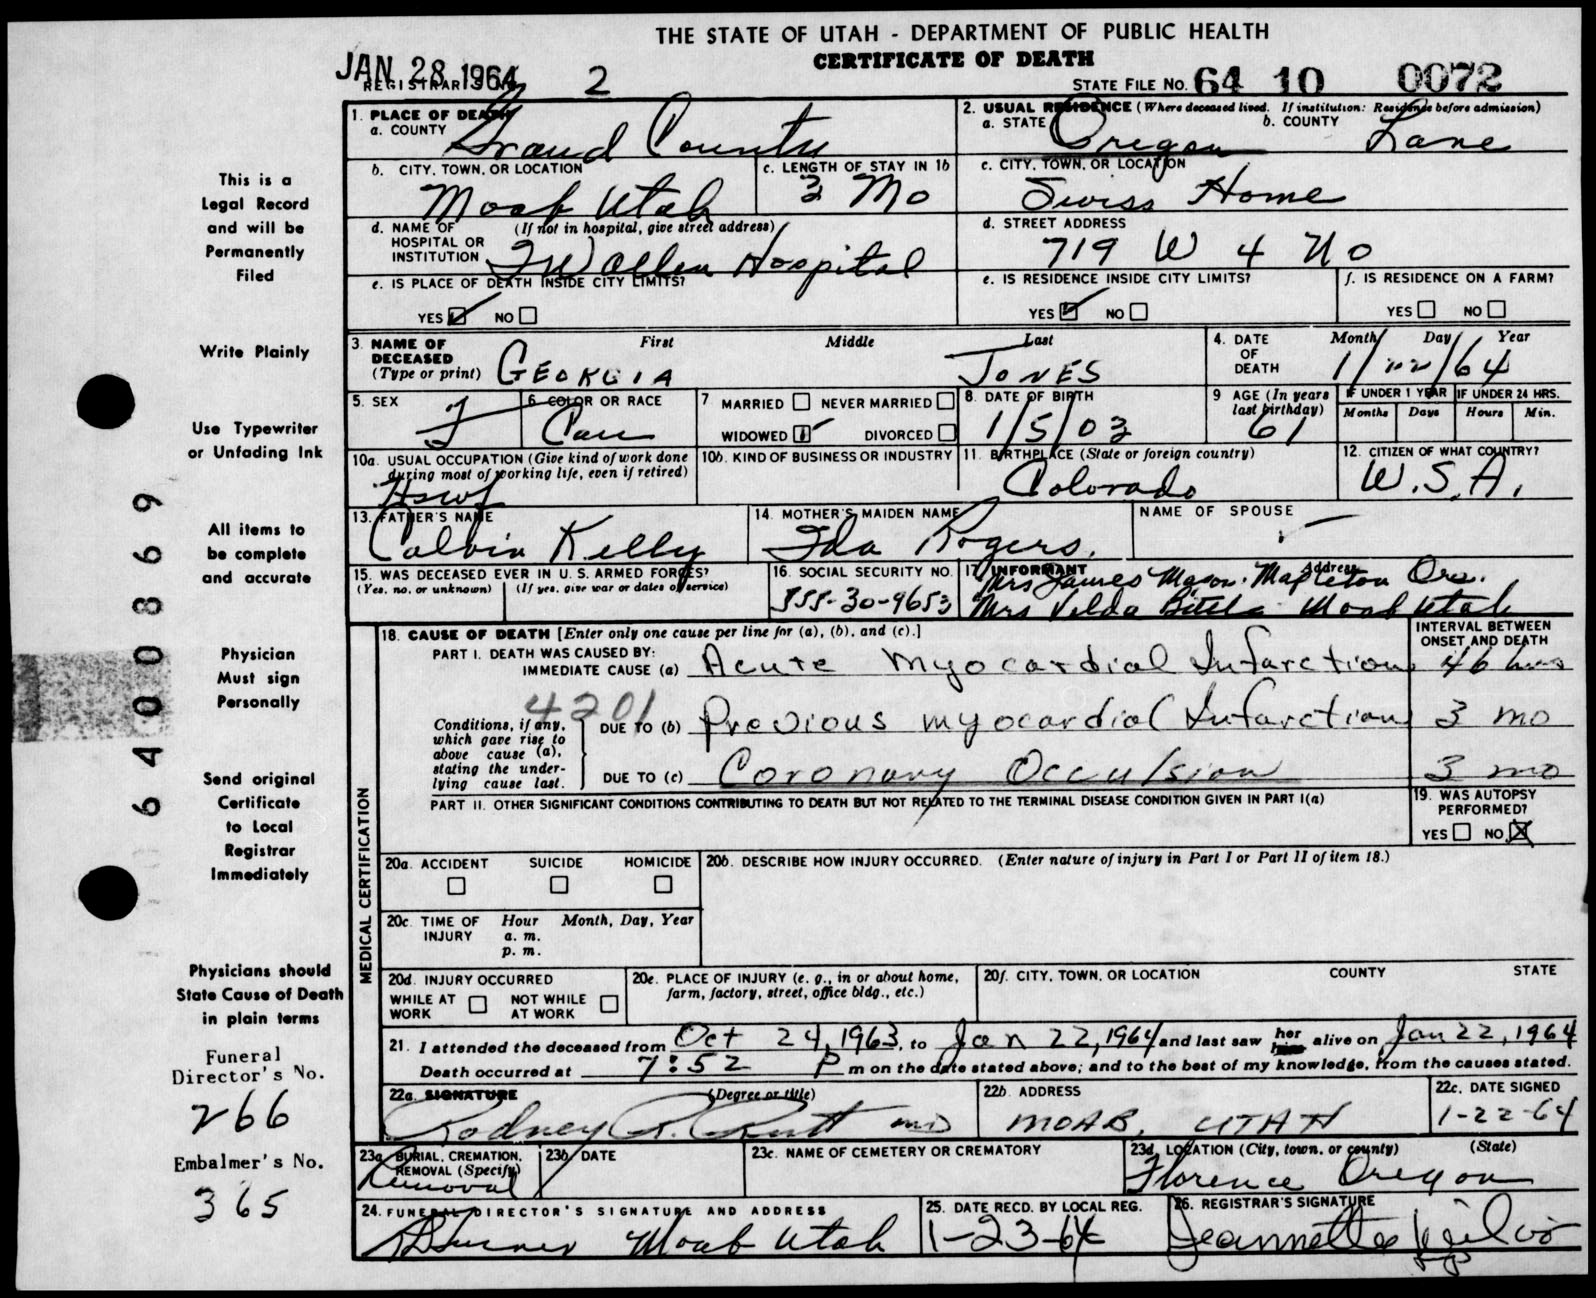 THE STATE OF UTAH - DEPARTMENT OF PUBLIC HEALTH
CERTIFICATE OF DEATH
JAN 28 1964
REGISTRAR'S 2
STATE FILE NO. 64 10 0072
1. PLACE OF DEATH
a. COUNTY Grand County
2. USUAL RESIDENCE (Where deceased lived. If institution: Residence before admission)
a. STATE Oregon b. COUNTY Lane
b. CITY, TOWN, OR LOCATION Moab Utah
c. LENGTH OF STAY IN 1b 3 Mo
c. CITY, TOWN, OR LOCATION Swiss Home
d. NAME OF HOSPITAL OR INSTITUTION (If not in hospital, give street address) Hospital
d. STREET ADDRESS 719 W 4 No
e. IS PLACE OF DEATH INSIDE CITY LIMITS?
YES NO
e. IS RESIDENCE INSIDE CITY LIMITS?
YES NO
f. IS RESIDENCE ON A FARM?
YES NO
3. NAME OF DECEASED (Type or print) First Middle Last
GEORGIA JONES
4. DATE OF DEATH Month Day Year
1/22/64
5. SEX F
6. COLOR OR RACE Cau
7 MARRIED NEVER MARRIED
WIDOWED DIVORCED
8. DATE OF BIRTH 1/5/03
9 AGE (In years last birthday) 61
IF UNDER 1 YEAR Months Days
IF UNDER 24 HRS. Hours Min.
10a. USUAL OCCUPATION (Give kind of work done during most of working life, even if retired) Hswf
10b. KIND OF BUSINESS OR INDUSTRY
11. BIRTHPLACE (State or foreign country) Colorado
12. CITIZEN OF WHAT COUNTRY? U.S.A.
13. FATHER'S NAME Calvin Kelly
14. MOTHER'S MAIDEN NAME Ida Rogers.
NAME OF SPOUSE
15. WAS DECEASED EVER IN U. S. ARMED FORCES?
(Yes, no, or unknown) (If yes, give war or dates of service)
16. SOCIAL SECURITY NO. 555-30-9653
17. INFORMANT Address
Mrs James Mason. Mapleton Ore.
Mrs Velda Moab Utah
MEDICAL CERTIFICATION
18. CAUSE OF DEATH [Enter only one cause per line for (a), (b), and (c).]
INTERVAL BETWEEN ONSET AND DEATH
PART I. DEATH WAS CAUSED BY:
IMMEDIATE CAUSE (a) Acute Myocardial Infarction 46 hrs
4201
Conditions, if any, which gave rise to above cause (a), stating the underlying cause last.
DUE TO (b) Previous myocardial Infarction 3 mo
DUE TO (c) Coronary Occulsion 3 mo
PART II. OTHER SIGNIFICANT CONDITIONS CONTRIBUTING TO DEATH BUT NOT RELATED TO THE TERMINAL DISEASE CONDITION GIVEN IN PART I(a)
19. WAS AUTOPSY PERFORMED?
YES NO
20a. ACCIDENT SUICIDE HOMICIDE
20b. DESCRIBE HOW INJURY OCCURRED. (Enter nature of injury in Part I or Part II of item 18.)
20c. TIME OF INJURY Hour Month, Day, Year
a. m.
p. m.
20d. INJURY OCCURRED
WHILE AT WORK NOT WHILE AT WORK
20e. PLACE OF INJURY (e. g., in or about home, farm, factory, street, office bldg., etc.)
20f. CITY, TOWN, OR LOCATION COUNTY STATE
21. I attended the deceased from Oct 24, 1963, to Jan 22, 1964 and last saw her him alive on Jan 22, 1964
Death occurred at 7:52 P m on the date stated above; and to the best of my knowledge, from the causes stated.
22a. SIGNATURE (Degree or title) Rodney MD
22b. ADDRESS MOAB, UTAH
22c. DATE SIGNED 1-22-64
23a. BURIAL, CREMATION, REMOVAL (Specify) Removal
23b. DATE
23c. NAME OF CEMETERY OR CREMATORY
23d. LOCATION (City, town, or county) (State)
Florence Oregon
24. FUNERAL DIRECTOR'S SIGNATURE AND ADDRESS
Turner Moab Utah
25. DATE RECD. BY LOCAL REG. 1-23-64
26. REGISTRAR'S SIGNATURE Jeannette
This is a
Legal Record
and will be
Permanently
Filed
Write Plainly
Use Typewriter
or Unfading Ink
All items to
be complete
and accurate
Physician
Must sign
Personally
Send original
Certificate
to Local
Registrar
Immediately
Physicians should
State Cause of Death
in plain terms
Funeral
Director's No.
266
Embalmer's No.
365
6400869